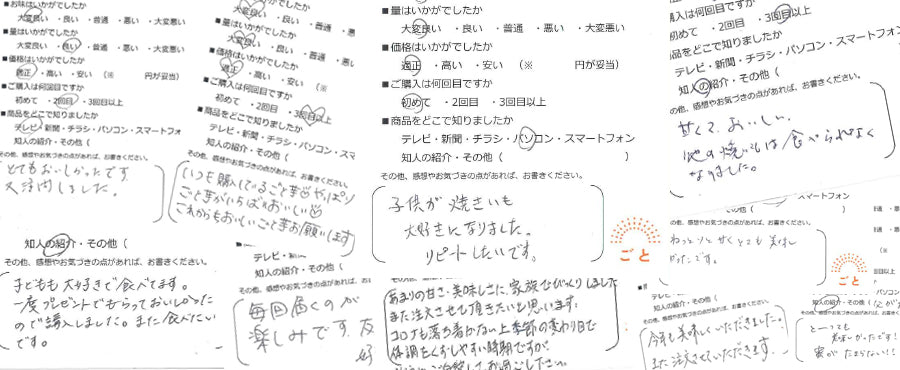 ■お味はいかがでしたか
大変良い ・良い ・普通 ・悪い ・大変悪い
■量はいかがでしたか
大変良い ・良い ・普通 ・悪い ・大変悪い
■価格はいかがでしたか
適正 ・高い ・安い （※ 円が妥当）
■ご購入は何回目ですか
初めて ・2回目 ・3回目以上
■商品をどこで知りましたか
テレビ・新聞・チラシ・パソコン・スマートフォ
知人の紹介・その他（
その他、感想やお気づきの点があれば、お書きください。
とてもおいしかったです
大変良い ・良い ・普通
■量はいかがでしたか
大変良い ・良い ・普通
■価格はいかがでしたか
適正 ・高い ・安い （※
■ご購入は何回目ですか
初めて ・2回目 ・3回目以上
■商品をどこで知りましたか
テレビ・新聞・チラシ・パソコン・スマ
知人の紹介・その他（
その他、感想やお気づきの点があれば、お書きください。
いつも購入しているごと芋 やっぱり
ごと芋がいちばんおいしい
これからもおいしいごと芋お願いします
■量はいかがでしたか
大変良い ・良い ・普通 ・悪い ・大変悪い
■価格はいかがでしたか
適正 ・高い ・安い （※ 円が妥当）
■ご購入は何回目ですか
初めて ・2回目 ・3回目以上
■商品をどこで知りましたか
テレビ・新聞・チラシ・パソコン・スマートフォン
知人の紹介・その他（ ）
その他、感想やお気づきの点があれば、お書きください。
子供が焼きいも
大好きになりました。
リピートしたいです。
ごと
購入は何回目ですか
初めて ・2回目 ・3回目以上
商品をどこで知りましたか
テレビ・新聞・チラシ・パソコン・スマートフォン
知人の紹介・その他（
の他、感想やお気づきの点があれば、お書きください。
甘くて、おいしい。
他の焼いもは食べられなく
なりました。
スマートフォン
の他、感想やお気づきの点があれば、お書きください。
ごと
知人の紹介・その他（
その他、感想やお気づきの点があれば、お書きください。
子どもも大好きで食べてます。
一度プレゼントでもらっておいしかった
ので購入しました。また食べたい
です。
テレビ・新
知人の紹介・その他（
その他、感想やお気づきの点があれば、お
毎回届くのが
楽しみです。
あまりの甘さ・美味しさに、家族でびっくりしました
また注文させて頂きたいと思います。
コロナも落ち着かない上季節の変わり目で
体調もくずしやすい時期ですが、
テレビ
知人の紹介・その他（
その他、感想やお気づきの点があれば、お書きください。
今年も美味しくいただきました。
また注文させていただきます。
知人の紹介・その他（
その他、感想やお気づきの点があれば、お書きくだ
とーっても
美味しかったです！